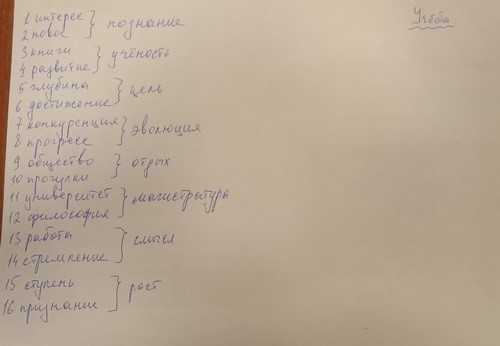 Учёба
1 интерес
2 новое
познание
3 книги
4 развитие
учёность
5 глубина
6 достижение
цель
7 конкуренция
8 прогресс
эволюция
9 общество
10 прогулки
отдых
11 университет
12 философия
магистратура
13 работа
14 стремление
смысл
15 ступень
16 признание
рост